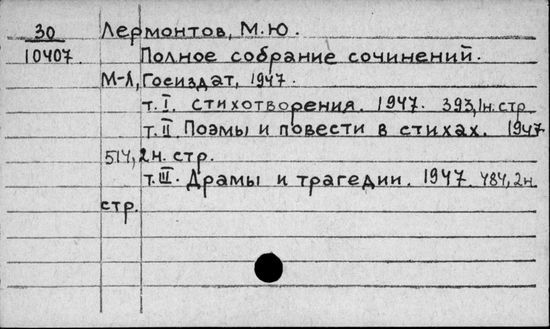 30 Лермонтов, М.Ю.
10407. Полное собрание сочинений.
М-Л, Госиздат, 1947.
т. I. Стихотворения. 1947. 393, 1н. стр
т. II. Поэмы и повести в стихах. 1947
514, 2н. стр.
т. III. Драмы и трагедии. 1947. 484, 2н.
стр.